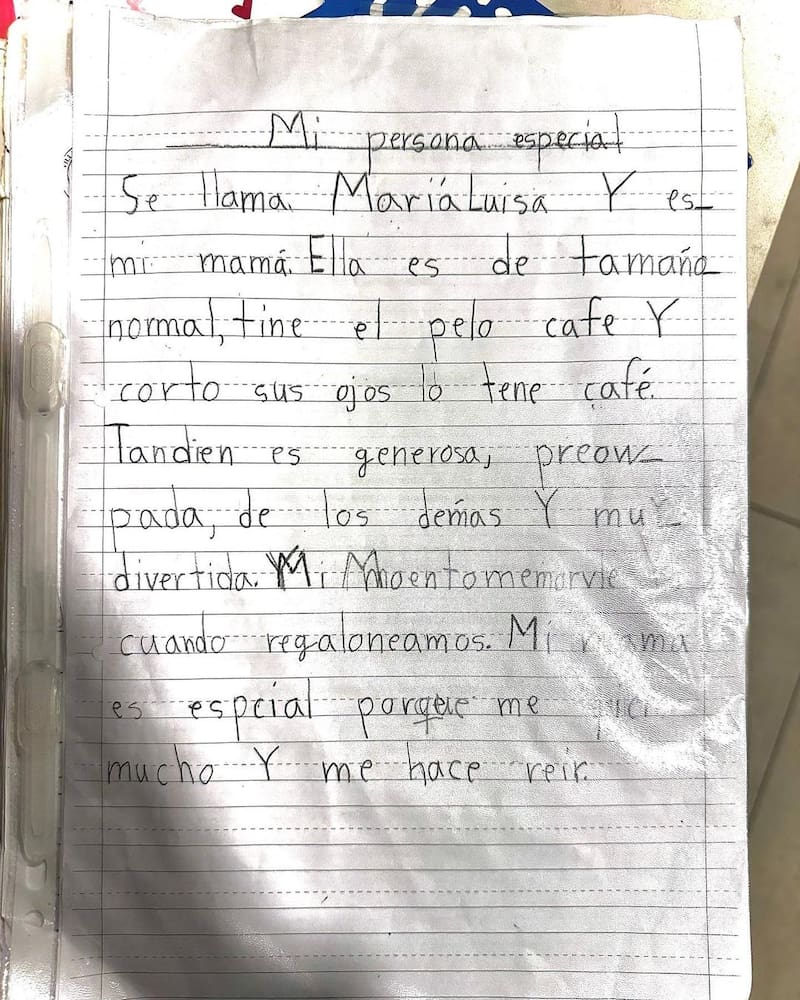 Mi persona especial
Se llama MaríaLuisa Y es
mi mamá. Ella es de tamaño
normal, tine el pelo cafe Y
corto sus ojos lo tene café.
Tandien es generosa, preocu
pada, de los demás Y muy
divertida. Mi
cuando regaloneamos. Mi mama
es espcial porque me
mucho Y me hace reir.